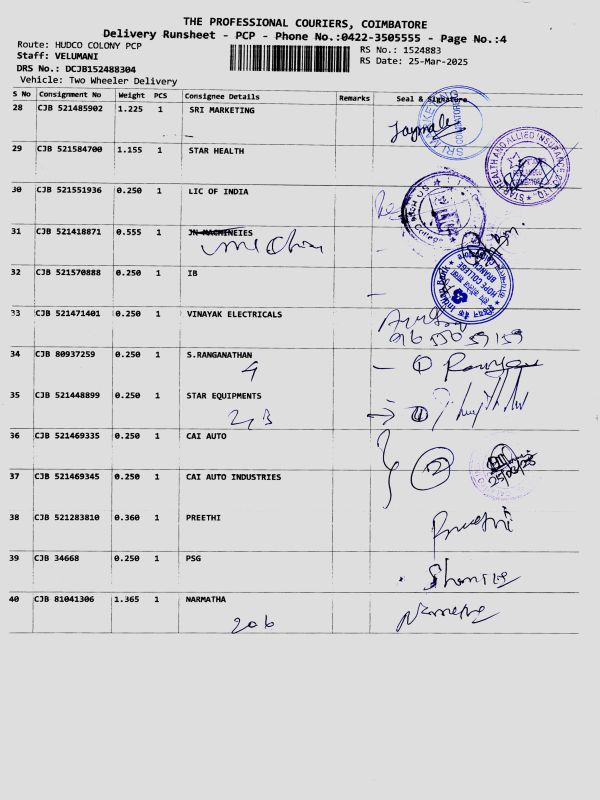 THE PROFESSIONAL COURIERS, COIMBATORE
Delivery Runsheet - PCP - Phone No.:0422-3505555 - Page No.:4
Route: HUDCO COLONY PCP
RS No.: 1524883
Staff: VELUMANI
RS Date: 25-Mar-2025
DRS No.: DCJB152488304
Vehicle: Two Wheeler Delivery
S No Consignment No Weight PCS Consignee Details Remarks Seal & Signature
28 CJB 521485902 1.225 1 SRI MARKETING
29 CJB 521584700 1.155 1 STAR HEALTH
30 CJB 521551936 0.250 1 LIC OF INDIA
31 CJB 521418871 0.555 1 JN MACHINEIES
32 CJB 521570888 0.250 1 IB
33 CJB 521471401 0.250 1 VINAYAK ELECTRICALS
34 CJB 80937259 0.250 1 S.RANGANATHAN
4
35 CJB 521448899 0.250 1 STAR EQUIPMENTS
36 CJB 521469335 0.250 1 CAI AUTO
2
37 CJB 521469345 0.250 1 CAI AUTO INDUSTRIES
38 CJB 521283810 0.360 1 PREETHI
Preethi
39 CJB 34668 0.250 1 PSG
40 CJB 81041306 1.365 1 NARMATHA
206